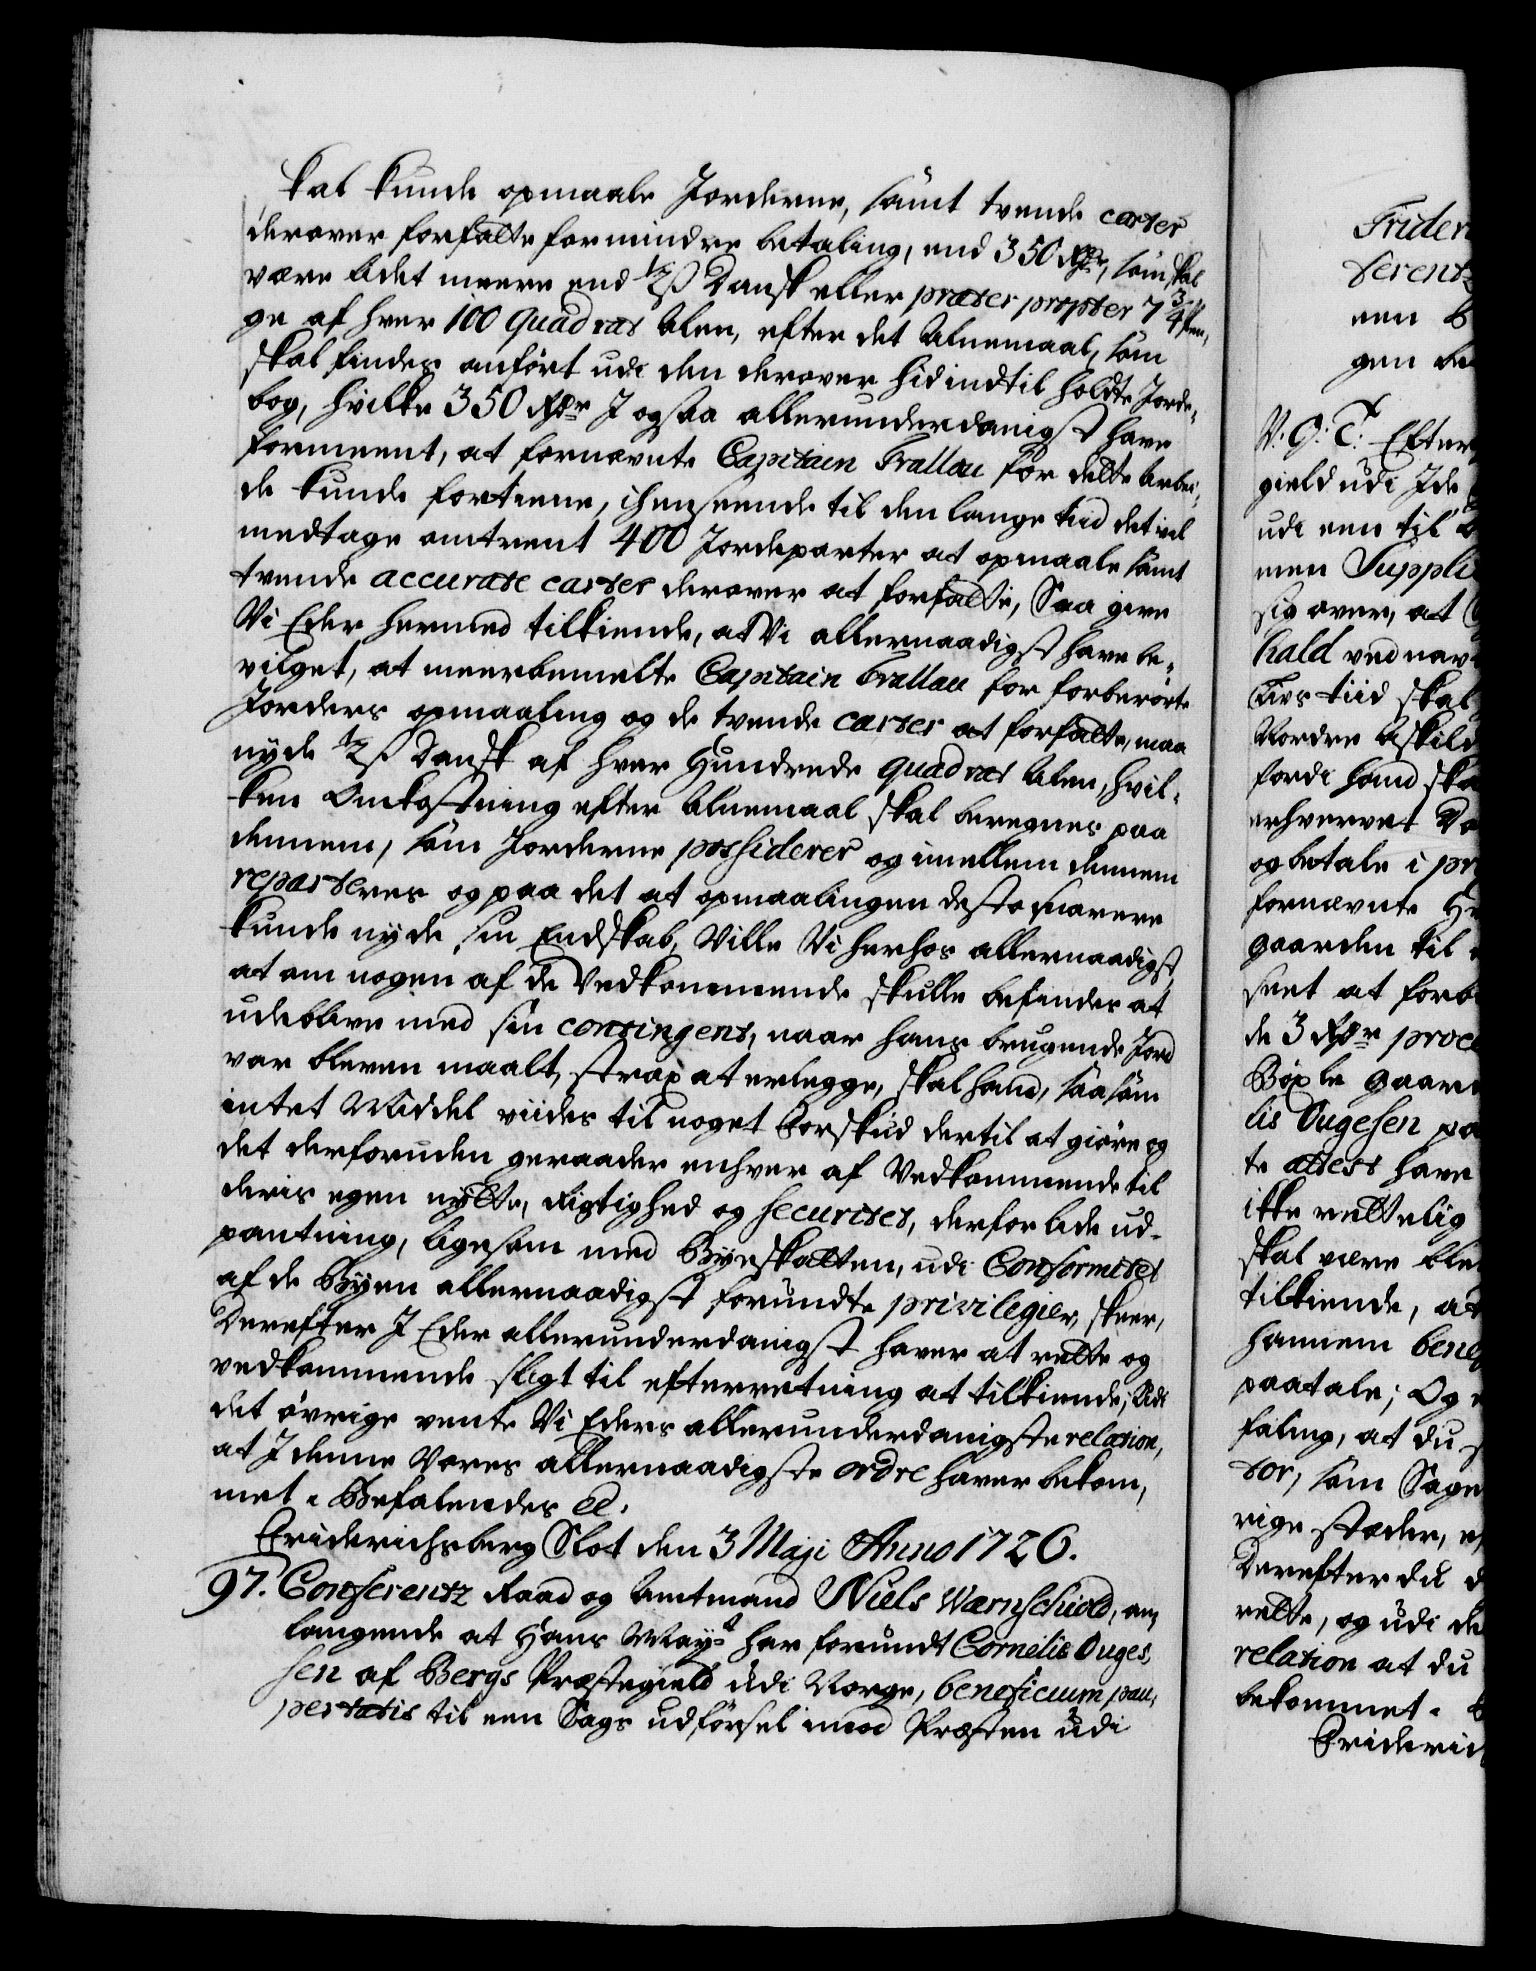 skal kunde opmaale Jorderne, samt tvende carter
derover forfatte for mindre betaling, end 350 Rdr, som skal
være lidet meere end ½ ß Dansk eller præter propter 7¾
ge af hver 100 quadrat Alen, efter det Alnemaal, som
skal findes anført udi den derover hidindtil holdte Jorde-
bog, hvilke 350 Rdr J ogsaa allerunderdanigst have
formeent, at fornævnte Capitain Frallau for dette Arbei-
de kunde fortiene, i henseende til den lange tiid det vil
medtage omtrent 400 Jordeparter at opmaale samt
tvende accurate carter derover at forfatte, Saa give
Vi Eder hermed tilkiende, at Vi allernaadigst have be-
vilget, at meerbemelte Capitain Frallau for forberørte
Jorders opmaaling og de tvende carter at forfatte, maa
nyde ½ ß Dansk af hver Hundrede quadrat Alen, hvil-
ken Omkostning efter Alnemaal skal beregnes paa
dennem, som Jorderne possiderer og imellem dennem
reparteres og paa det at opmaalingen desto snarere
kunde nyde sin Endskab, Ville Vi herhos allernaadigst,
at om nogen af de Vedkommende skulle befindes at
udeblive med sin contingent, naar hans brugende Jord
var bleven maalt, strax at erlegge, skal hand, saasom
intet Middel viides til noget Forskud dertil at giøre og
det derforuden geraader enhver af Vedkommende til
deris egen nytte, Rigtighed og securitet, derfor lide ud-
pantning, ligesom med Byeskatten, udi Conformitet
af de Byen allernaadigst forundte privilegier, skeer,
Derefter J Eder allerunderdanigst haver at rette og
vedkommende sligt til efterretning at tilkiende; Udi
det øvrige vente Vi Eders allerunderdanigste relation,
at J denne Vores allernaadigste ordre haver bekom,
met. Befalendes ed.
Friderichsberg Slot den 3 Maji Anno 1726.
97. Conferentz Raad og Amtmand Niels Wærnschiold, an,
langende at Hans Mayt har forundt Cornelis Ouges,
sen af Bergs Præstegield udi Norge, beneficium pau,
pertatis til een Sags udførsel imod Præsten udi
Frider
ferentz
een B
gen be
V: G: T: Efter
gield udi Jde
udi een til
men Suppli
sig over, at
hald ved nav
Tivs tiid skal
Nordre Askild
fordi hand ska
erhvervet Do
og betale i pr
fornævnte H
gaarden til
seet at forb
de 3 Rdr proc
Böxle gaar
lis Ougesen pa
te attest have
ikke rettelig
skal være ble
tilkiende, at
hannem bene
paatale; Og
faling, at du
tor, som Sage
rige stæder,
Derefter du d
rette, og udi de
relation at du
bekommet.
Friderich